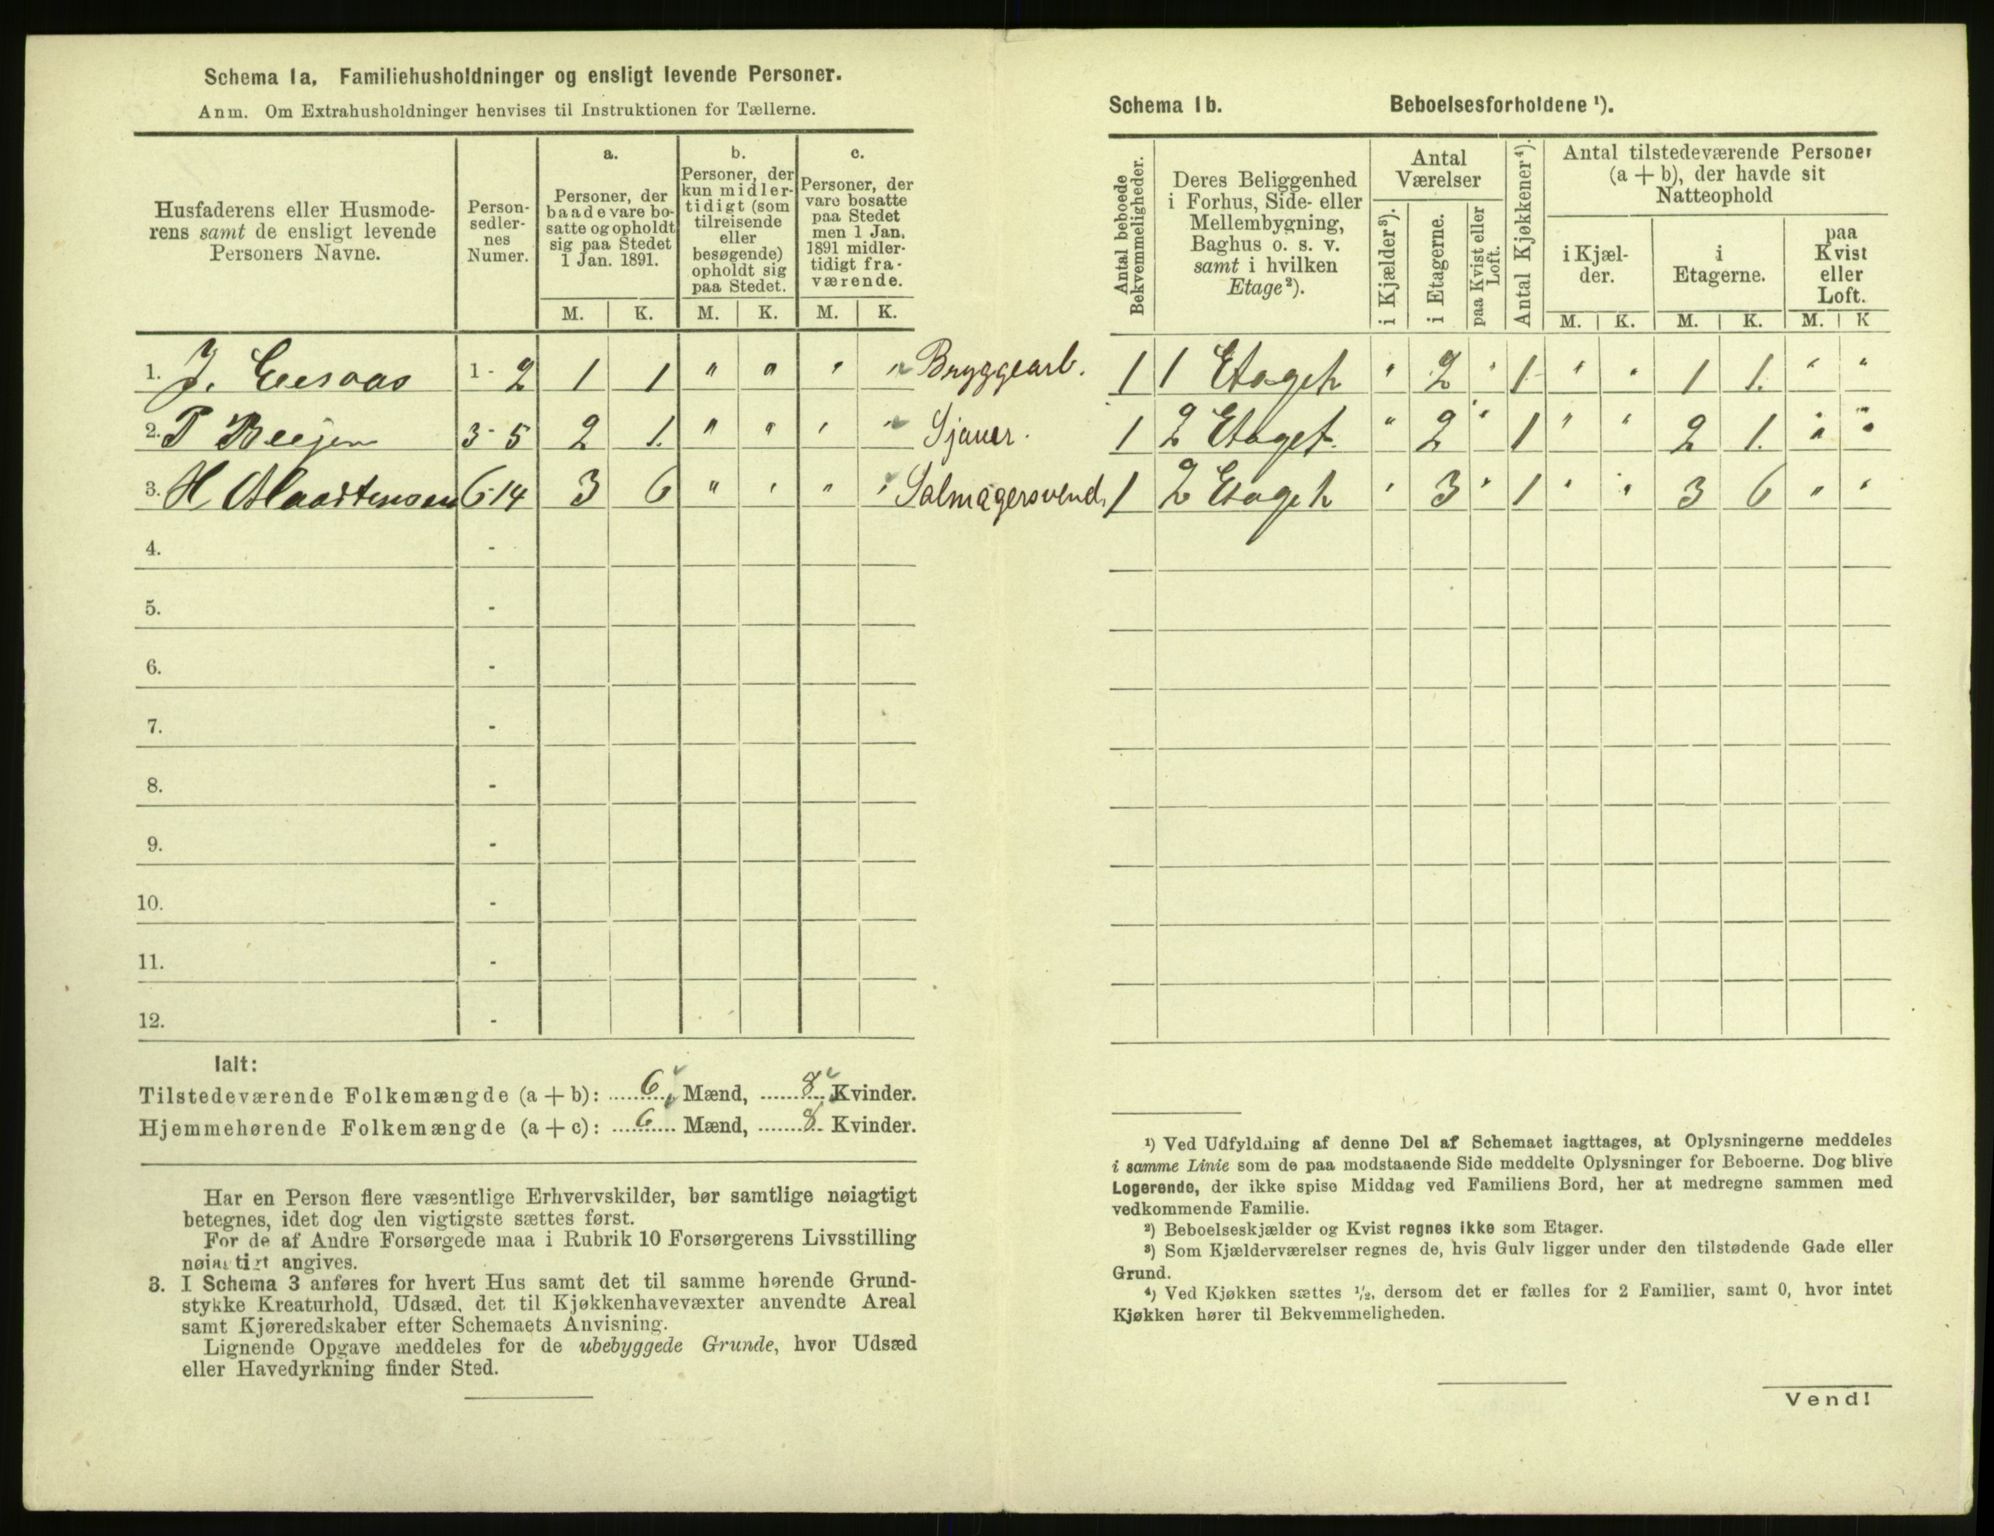 Schema 1a. Familiehusholdninger og ensligt levende Personer.
Anm. Om Extrahusholdninger henvises til Instruktionen for Tællerne.
Husfaderens eller Husmode-
rens samt de ensligt levende
Personers Navne.
Person-
sedler-
nes
Numer.
a.
Personer, der
baade vare bo-
satte og opholdt
sig paa Stedet
1 Jan. 1891.
b.
Personer, der
kun midler-
tidigt (som
tilreisende
eller
besøgende)
opholdt sig
paa Stedet.
c.
Personer, der
vare bosatte
paa Stedet
men 1 Jan.
1891 midler-
tidigt fra-
værende.
M. K. M. K. M. K.
1. J. 1 - 2 1 1 " " " " Bryggearb.
2. P 3 - 5 2 1. " " " " Sjauer.
3. H 6-14 3 6 " " " " Salmagersvend.
4. -
5. -
6. -
7. -
8. -
9. -
10. -
11. -
12. -
Ialt:
Tilstedeværende Folkemængde (a + b): 6 Mænd, 8 Kvinder.
Hjemmehørende Folkemængde (a + c): 6 Mænd, 8 Kvinder.
Har en Person flere væsentlige Erhvervskilder, bør samtlige nøiagtigt
betegnes, idet dog den vigtigste sættes først.
For de af Andre Forsørgede maa i Rubrik 10 Forsørgerens Livsstilling
nøiagtigt angives.
3. I Schema 3 anføres for hvert Hus samt det til samme hørende Grund-
stykke Kreaturhold, Udsæd, det til Kjøkkenhavevæxter anvendte Areal
samt Kjøreredskaber efter Schemaets Anvisning.
Lignende Opgave meddeles for de ubebyggede Grunde, hvor Udsæd
eller Havedyrkning finder Sted.
Schema 1b. Beboelsesforholdene ¹).
Antal beboede
Bekvemmeligheder.
Deres Beliggenhed
i Forhus, Side- eller
Mellembygning,
Baghus o. s. v.
samt i hvilken
Etage ²).
Antal
Værelser
i Kjælder ³).
i Etagerne.
paa Kvist eller
Loft.
Antal Kjøkkener ⁴).
Antal tilstedeværende Personer
(a + b), der havde sit
Natteophold
i Kjæl-
der.
i
Etagerne.
paa
Kvist
eller
Loft.
M. K. M. K. M. K
1 1 Etaget " 2 " 1 " " 1 1. " "
1 2 Etaget " 2 " 1 " " 2 1. " "
1 2 Etaget " 3 " 1 " " 3 6 " "
¹) Ved Udfyldning af denne Del af Schemaet iagttages, at Oplysningerne meddeles
i samme Linie som de paa modstaaende Side meddelte Oplysninger for Beboerne. Dog blive
Logerende, der ikke spise Middag ved Familiens Bord, her at medregne sammen med
vedkommende Familie.
²) Beboelseskjælder og Kvist regnes ikke som Etager.
³) Som Kjælderværelser regnes de, hvis Gulv ligger under den tilstødende Gade eller
Grund.
⁴) Ved Kjøkken sættes ½, dersom det er fælles for 2 Familier, samt 0, hvor intet
Kjøkken hører til Bekvemmeligheden.
Vend!